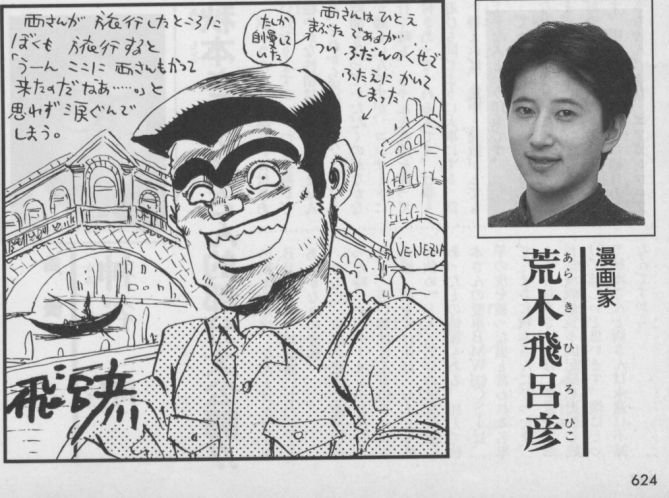 両さんが旅行したところに
ぼくも旅行すると
「うーんここに両さんもかつて
来たのだなあ……。」と
思わず涙ぐんで
しまう。
両さんはひとえ
まぶたであるが
つい ふだんのくせで
ふたえにかいて
しまった
VENEZIA
飛呂彦
漫画家
荒木飛呂彦
あらきひろひこ
624